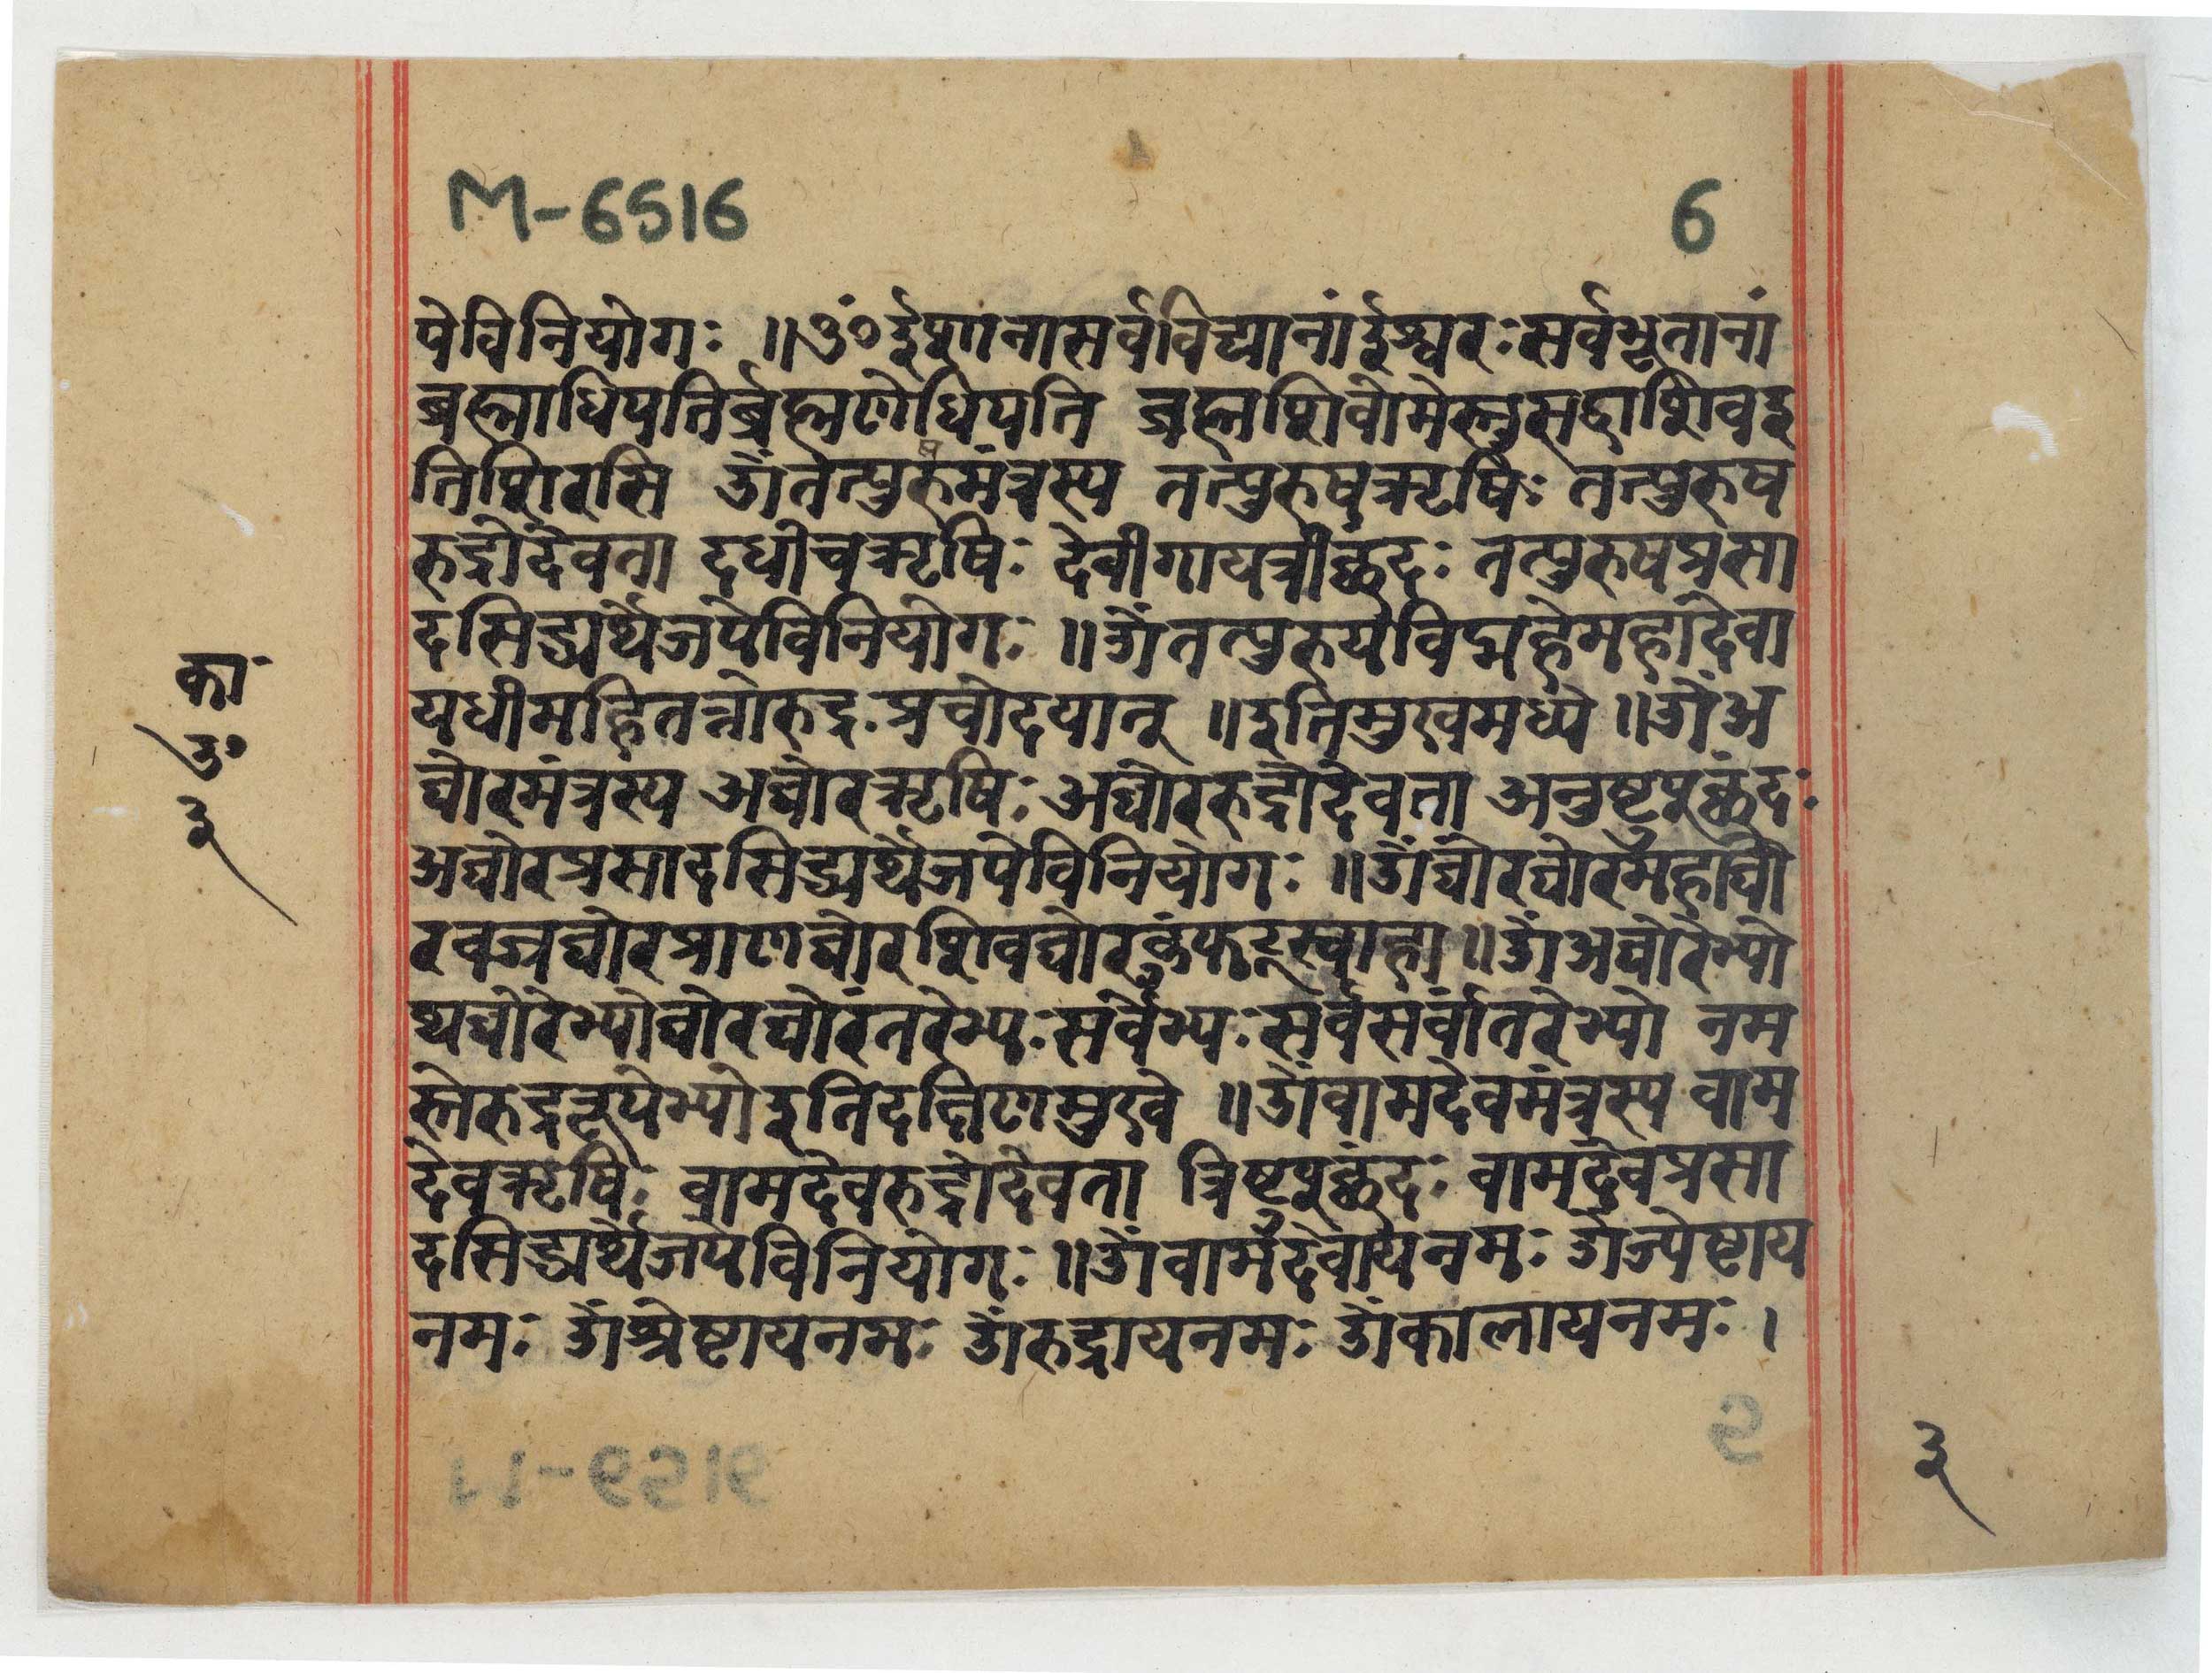 M-6516
6
पेविनियोगः ॥ॐईशानासर्वविद्यानांईश्वरःसर्वभूतानां
ब्रह्माधिपतिर्ब्रह्मणोधिपति ब्रह्मशिवोमेस्तुसदाशिवइ
तिशिरसि ॐतत्पुरुषमंत्रस्य तत्पुरुषऋषिः तत्पुरुष
रुद्रोदेवता दधीचऋषिः देवीगायत्रीछंदः तत्पुरुषप्रसा
दसिद्ध्यर्थेजपेविनियोगः ॥ॐतत्पुरुयविद्महेमहादेवा
यधीमहितन्नोरुद्रःप्रचोदयात् ॥इतिमुखमध्ये ॥ॐअ
घोरमंत्रस्य अघोरऋषिः अघोररुद्रोदेवता अनुष्टपूछंदः
अघोरप्रसादसिद्ध्यर्थेजपेविनियोगः ॥ॐघोरघोरमहाघो
रवज्रघोरप्राणघोरशिवघोरहुंफट्स्वाहा ॥ॐअघोरेभ्यो
थघोरेभ्योघोरघोरंतरेभ्यःसर्वेभ्यःसर्वसर्वातरेभ्यो नम
स्तेरुद्ररूपेभ्योइतिदक्षिणमुखे ॥ॐवामदेवमंत्रस्य वाम
देवऋषिः वामदेवरुद्रोदेवता त्रिष्टपूछंदः वामदेवप्रसा
दसिद्ध्यर्थेजपेविनियोगः ॥ॐवामदेवायनमः ॐज्येष्टाय
नमः ॐश्रेष्टायनमः ॐरुद्रायनमः ॐकालायनमः ।
का॰
उ॰
३
३